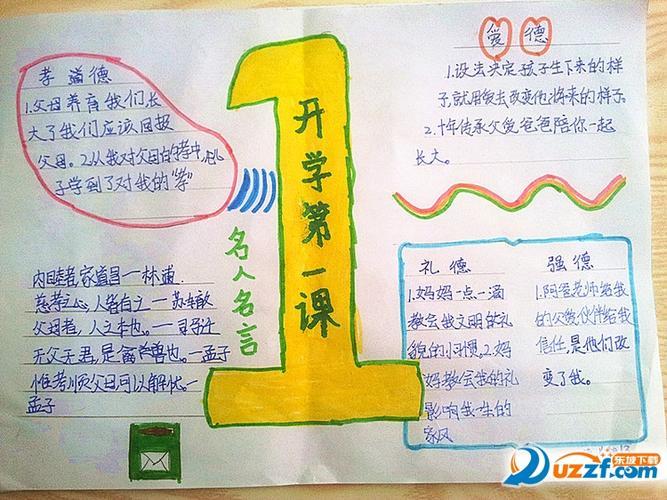 孝道德
1.父母养育我们长
大了我们应该回报
父母。2.从我对父母的孝中,儿
子学到了对我的“孝”
开学第一课
名人名言
内睦者家道昌一林逋
慈孝之心,人皆有之一苏辙
父母者,人之本也。一司马迁
无父无君,是禽兽也。一孟子
惟孝顺父母可以解忧。一
孟子
爱德
1.没法决定孩子生下来的样
子,就用爱去改变他将来的样子。
2.十年传承父爱爸爸陪你一起
长大。
礼德
1.妈妈一点一滴
教会我文明的礼
貌的习惯,2.妈
妈教会我的礼
影响我一生的
家风
强德
1.阿爸老师给我
的父爱,伙伴给我
信任,是他们改
变了我。
乐城下载
uzzf.com